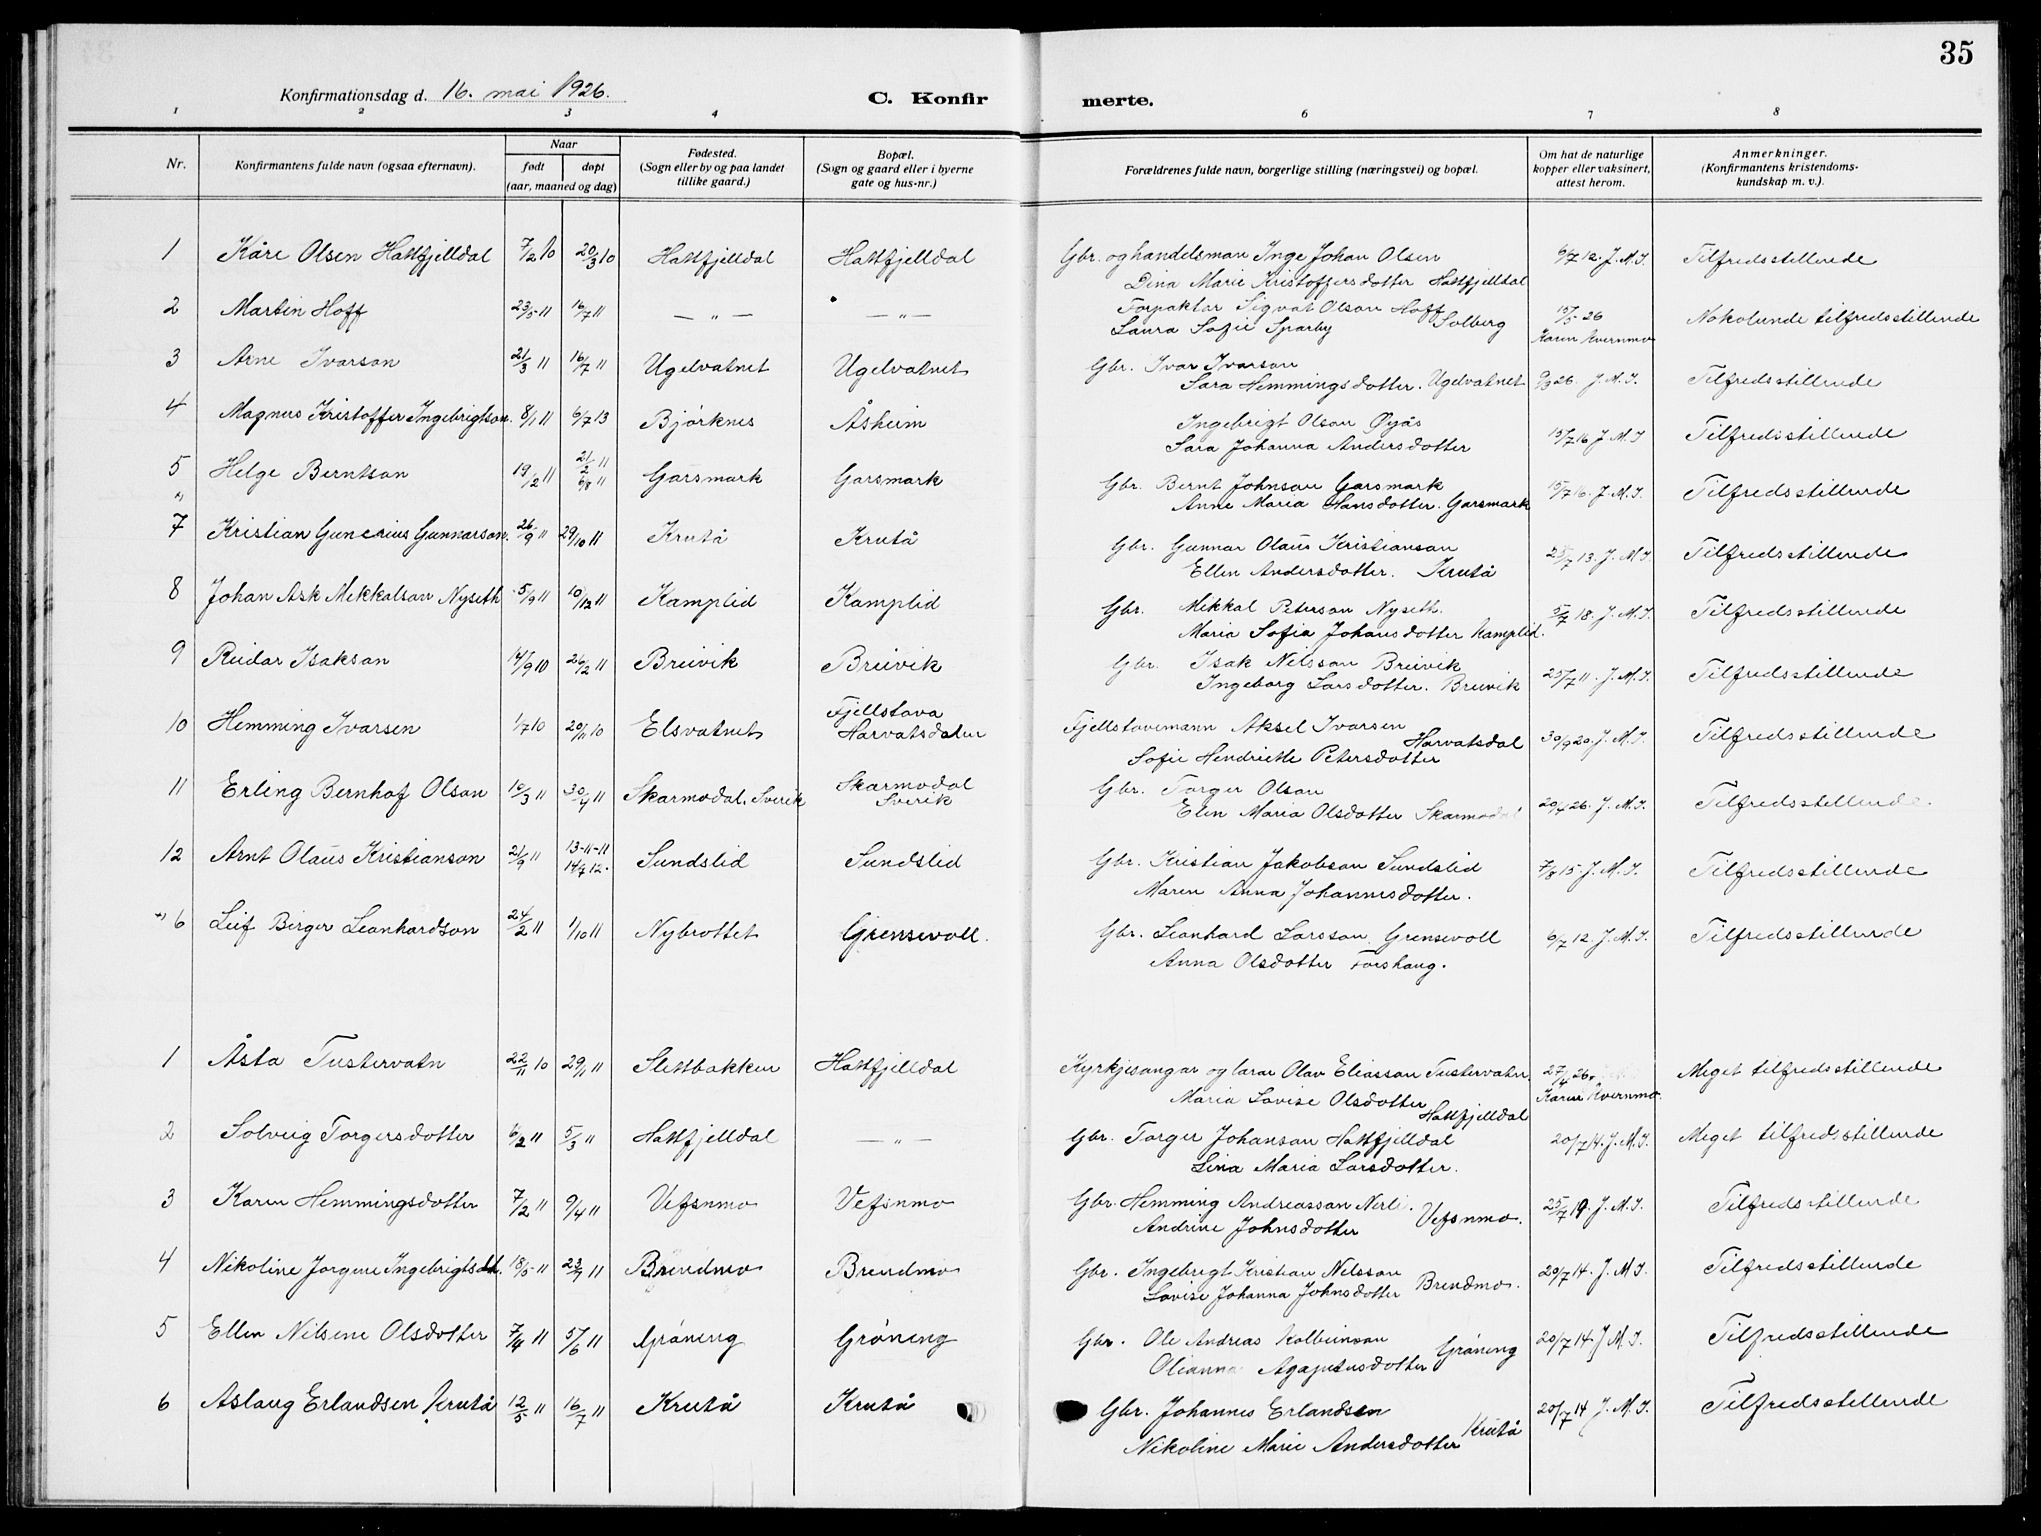 35
Konfirmationsdag d. 16. mai 1926.
C. Konfirmerte.
1 2 3 4 6 7 8
Nr. Konfirmantens fulde navn (ogsaa efternavn). Naar født døpt (aar, maaned og dag) Fødested. (Sogn eller by og paa landet tillike gaard.) Bopæl. (Sogn og gaard eller i byerne gate og hus-nr.) Forældrenes fulde navn, borgerlige stilling (næringsvei) og bopæl. Om hat de naturlige kopper eller vaksinert, attest herom. Anmerkninger. (Konfirmantens kristendomskundskap m. v.).
1 Kåre Olsen Hattfjelldal 7/2 10 20/3 10 Hattfjelldal Hattfjelldal Gbr. og handelsman Inge Johan Olsen 6/7 12. J. M. I. Tilfredsstillende
Dina Marie Kristoffersdotter Hattfjelldal
2 Martin Hoff 23/5 11 16/7 11 — „ — — „ — Forpaktar Sigvat Olson Hoff 15/5 26 Nokolunde tilfredsstillende
Laura Sofie Sparby Solberg Karen Kvernmo
3 Arne Ivarson 21/3 11 16/7 11 Ugelvatnet Ugelvatnet Gbr. Ivar Ivarson
Sara Hemmingsdotter. Ugelvatnet 9/3 26. J. M. I. Tilfredsstillende
4 Magnus Kristoffer Ingebrigtson. 8/1 11 6/7 13 Bjørknes Åsheim Ingebrigt Olson Øyås
Sara Johanna Andersdotter 15/7 16 J. M. I Tilfredsstillende
5 Helge Berntson 19/2 11 21/2 11 6/8 11 Garsmark Garsmark Gbr. Bernt Johnson Garsmark 15/7 16. J. M. I. Tilfredsstillende
Anne Maria Hansdotter. Garsmark
7 Kristian Gunerius Gunnarson. 26/9 11 29/10 11 Krutå Krutå Gbr. Gunnar Olaus Kristianson 25/7 13. J. M. I Tilfredsstillende
Ellen Andersdotter. Krutå
8 Johan Ask Mekkalson Nyseth 5/9 11 10/12 11 Kamplid Kamplid Gbr. Mekkal Peterson Nyseth. 5/7 18. J. M. I. Tilfredsstillende
Maria Sofia Johansdotter Kamplid.
9 Reidar Isakson 14/9 10 26/2 11 Breivik Breivik Gbr. Isak Nilsson Breivik 25/7 11. J. M. I. Tilfredsstillende
Ingeborg Larsdotter. Breivik
10 Hemming Ivarsen 1/7 10 20/11 10 Elsvatnet Fjellstova Harvatsdalen Fjellstovemann Aksel Ivarsen 30/9 20. J. M. I. Tilfredsstillende
Sofie Hendrikke Petersdotter Harvatsdal
11 Erling Bernhof Olson 16/3 11 30/4 11 Skarmodal. Sverik Skarmodal Sverik Gbr. Torger Olson 20/4 26. J. M. I. Tilfredsstillende.
Elen Maria Olsdotter Skarmodal
12 Arnt Olaus Kristianson 21/9 11 13-11-11 14/7 12. Sundslid Sundslid Gbr. Kristian Jakobson Sundslid 7/8 15. J. M. I. Tilfredsstillende
Maren Anna Johannesdotter.
6 Leif Birger Leonhardson 24/2 11 1/10 11 Nybrottet Grensevoll. Gbr. Leonhard Larsson Grensevoll 6/7 12. J. M. I. Tilfredsstillende
Anna Olsdotter Forshaug.
1 Åsta Tustervatn 22/11 10 29/1 11 Slettbakken Hattfjelldal Kyrkjesangar og lærar Olav Eliasson Tustervatn. 27/4 26. Meget tilfredsstillende
Maria Lovise Olsdotter Hattfjelldal Karen Kvernmo.
2 Solveig Torgersdotter 6/2 11 5/3 11 Hattfjelldal — „ — Gbr. Torger Johanson Hattfjelldal 20/7 14. J. M. I. Meget tilfredsstillende
Lina Maria Larsdotter.
3 Karen Hemmingsdotter 7/2 11 9/4 11 Vefsnmo Vefsnmo Gbr. Hemming Andreasson Nerli. 25/7 19. J. M. I. Tilfredsstillende
Andrine Johnsdotter Vefsnmo.
4 Nikoline Jorgine Ingebrigtsdt. 18/5 11 23/7 11 Brendmo Brendmo Gbr. Ingebrigt Kristian Nilsson 20/7 14. J. M. I. Tilfredsstillende
Lovise Johanna Johnsdotter Brendmo.
5 Ellen Nilsine Olsdotter 7/4 11 5/6 11 Grøneng Grøneng Gbr. Ole Andreas Kolbeinson 20/7 14. J. M. I. Tilfredsstillende
Oleanna Agapetusdotter Grøneng
6 Aslaug Erlandsen Krutå 12/5 11 16/7 11 Krutå Krutå Gbr. Johannes Erlandsen 20/7 14 J. M. I. Tilfredsstillende
Nikoline Marie Andersdotter Krutå